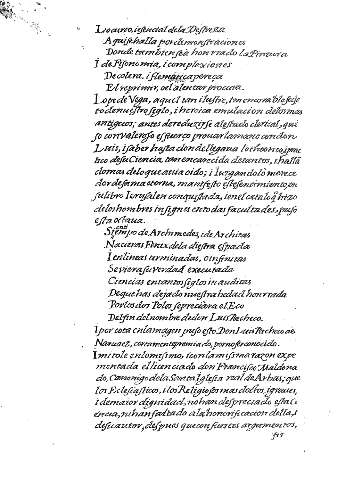 Lo curio, i esencial de la Destreza
Aqui se halla por demonstraciones
Donde tambien se ve honrrado la Pintura
I de Fisonomia, i complexiones
De colera, i flematica pereza
El reprimir, o el alentar procura.
Lope de Vega, aquel tan ilustre, tan memorable sujeto
de nuestro siglo, i heroica emulacion de los mas
antiguos; antes de reduzirse al estado clerical, qui
so con valeroso esfuerço provar la mano con don
Luis, i saber hasta donde llegava lo theorico, i prac
tico de su Ciencia, tan encarecida de tantos, i halla
do mas de lo que avia oido; i juzgandolo merece
dor de fama eterna, manifesto este sentimiento en
su libro Ierusalen conquistada, i en el catalogo q̃ hizo
de los hombres insignes en todas facultades, puso
esta octava.
Si en tiempo de Archimedes, i de Architas
Nacieras Fenix de la diestra espada
I en lineas terminadas, o infinitas
Se viera su verdad executada
Ciencias en tantos siglos inauditas
De que has dejado nuestra hedad honrrada
Por los dos Polos se preciara el Eco
Del fin del nombre de don Luis Pacheco.
I por cota en la margen puso esto. Don Luis Pacheco de
Narvaez, con tanto ingenio conocido.
Imitole en lo mismo, i con la misma razon expe
rimentada el licenciado don Francisco Maldona
do, Canonigo de la Santa Iglesia real de Arbas; que
los Eclesiasticos, i los Religiosos mas doctos, i graves,
i de maior dignidad, no han despreciado esta ci
encia, ni han faltado a la honorificacion della, i
de su autor, despues que con fuertes argumentos,